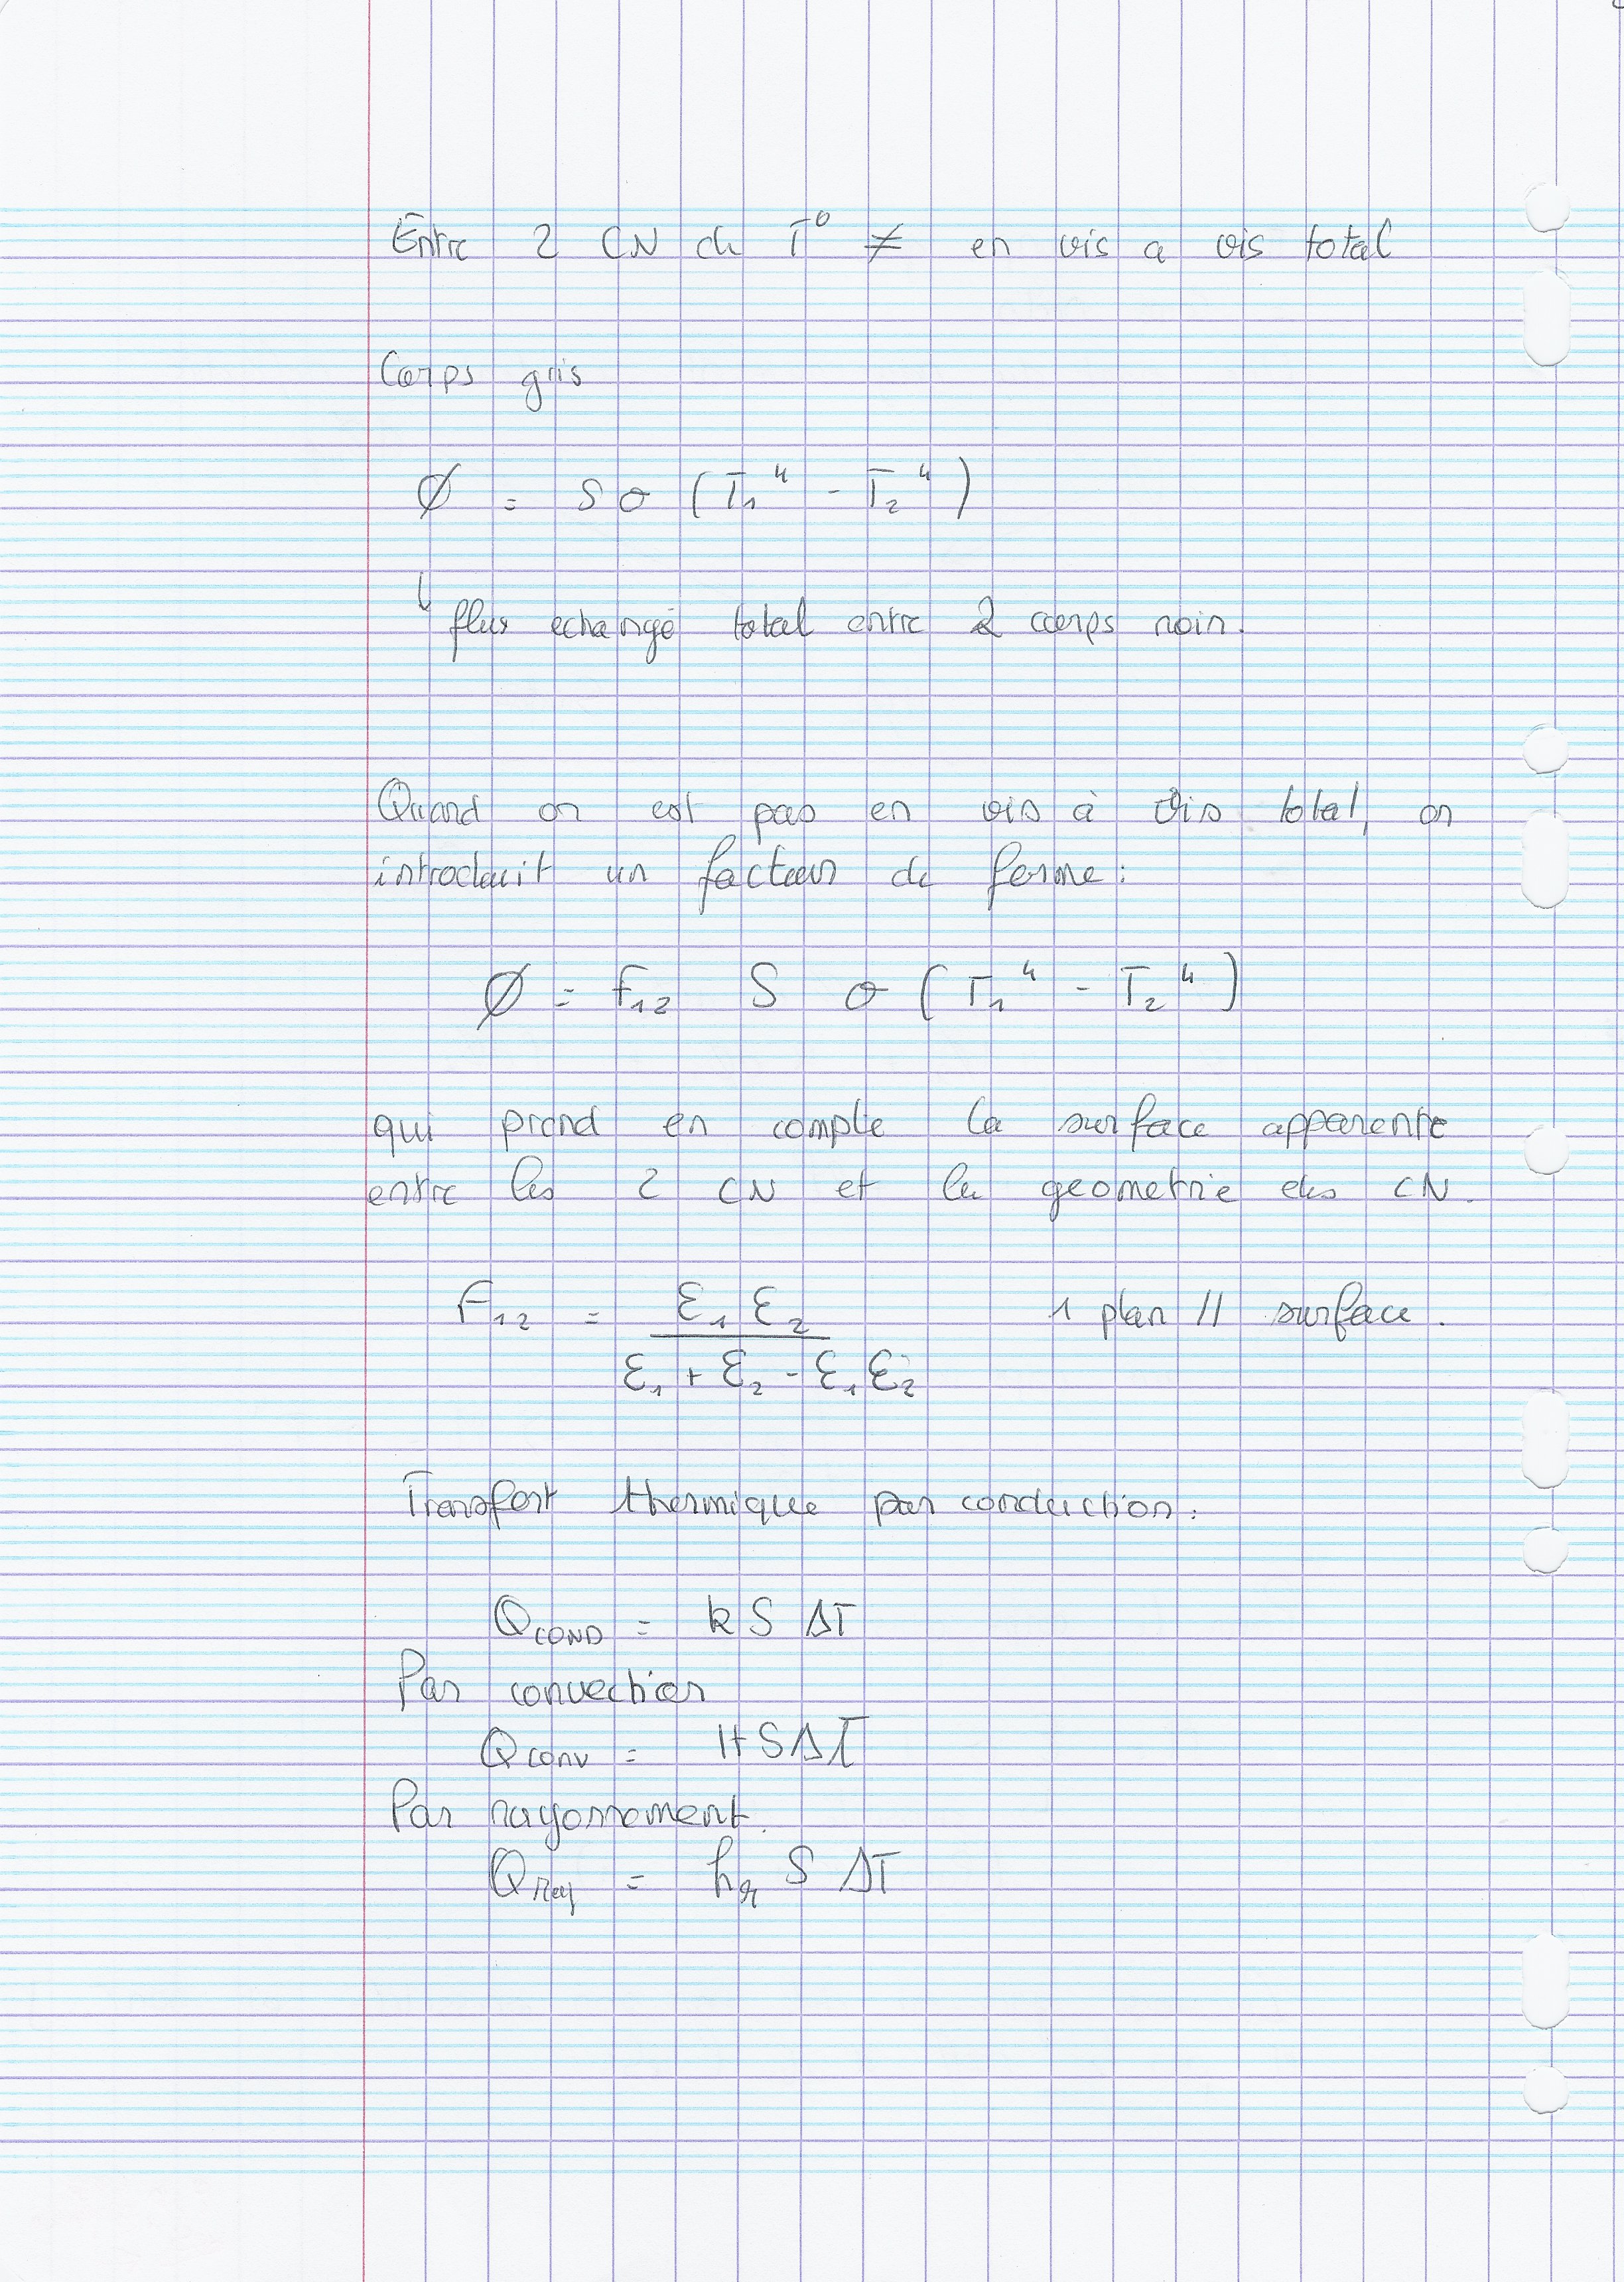 Entre 2 CN de T° ≠ en vis a vis total
Corps gris
Ø = S σ (T₁⁴ - T₂⁴)
↳ flux echangé total entre 2 corps noir.
Quand on est pas en vis à vis total, on
introduit un facteur de forme:
Ø = F₁₂ S σ (T₁⁴ - T₂⁴)
qui prend en compte la surface apparente
entre les 2 CN et la geometrie des CN.
F₁₂ = ε₁ ε₂ / (ε₁ + ε₂ - ε₁ ε₂) 1 plan // surface.
Transfert thermique par conduction:
Q_COND = k S ΔT
Par convection
Q_CONV = H S ΔT
Par rayonnement.
Q_Ray = h_r S ΔT